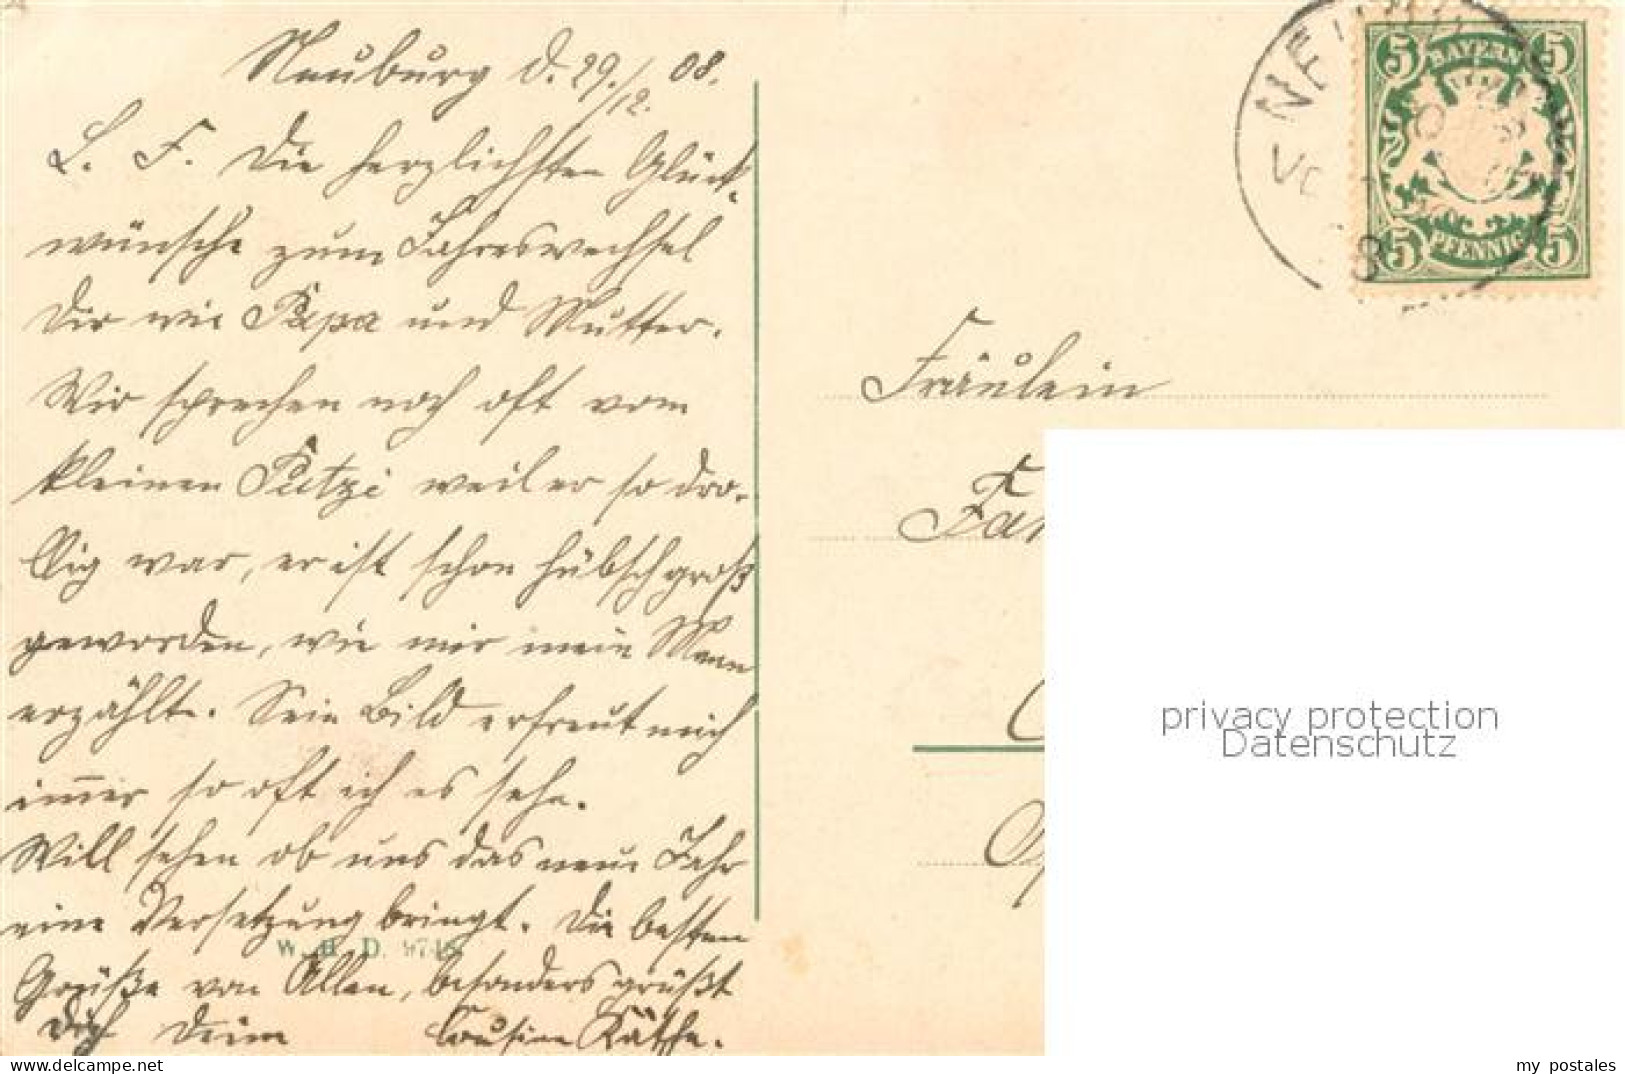 Neuburg d. 29./12. 08.
L. F. Die herzlichsten Glück-
wünsche zum Jahreswechsel
Dir wie Papa und Mutter.
Wir sprechen noch oft vom
kleinen Putzi weil er so dro-
llig war, er ist schon hübsch groß
geworden, wie mir mein Mann
erzählte. Sein Bild erfreut mich
immer so oft ich es sehe.
Will sehen ob uns das neue Jahr
eine Versetzung bringt. Die besten
Grüße von Allen, besonders grüßt
Dich Deine Cousine Käthe.
W. H. D.
5 BAYERN 5
5 PFENNIG 5
NEU
Fräulein
privacy protection
Datenschutz
delcampe.net
my_postales